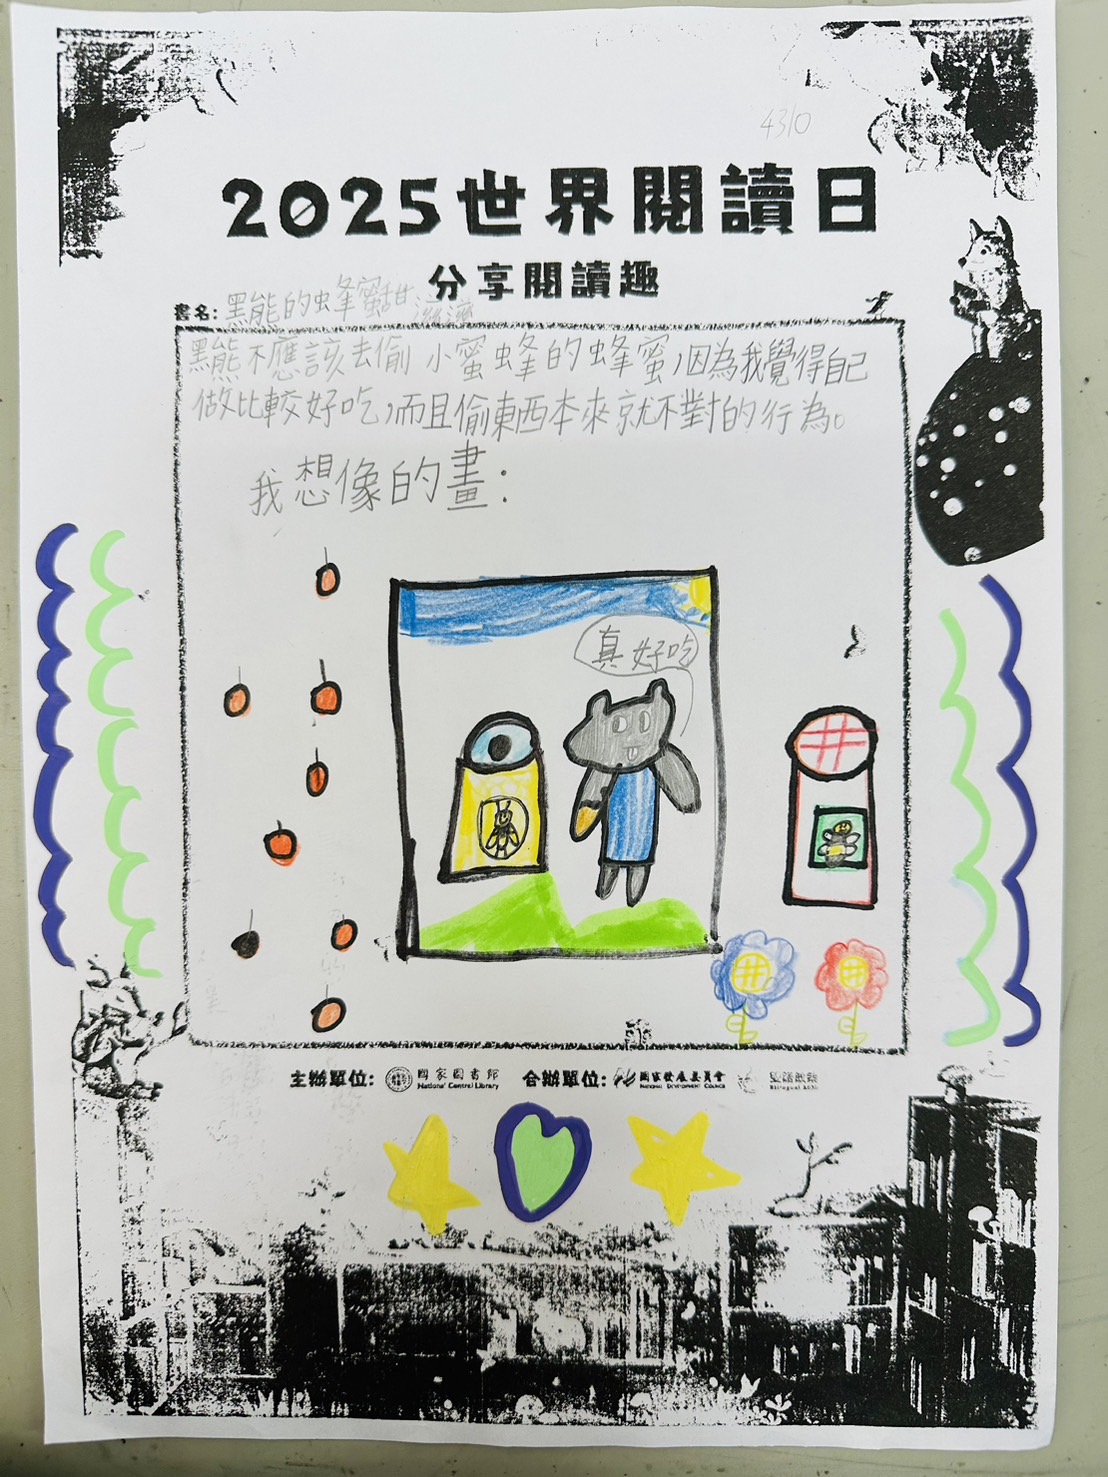 4310
2025世界閱讀日
分享閱讀趣
書名:黑熊的蜂蜜甜滋滋
黑熊不應該去偷小蜜蜂的蜂蜜,因為我覺得自己
做比較好吃,而且偷東西本來就不對的行為。
我想像的畫:
真好吃
主辦單位: 國家圖書館 National Central Library 合辦單位: 國家發展委員會 NATIONAL DEVELOPMENT COUNCIL